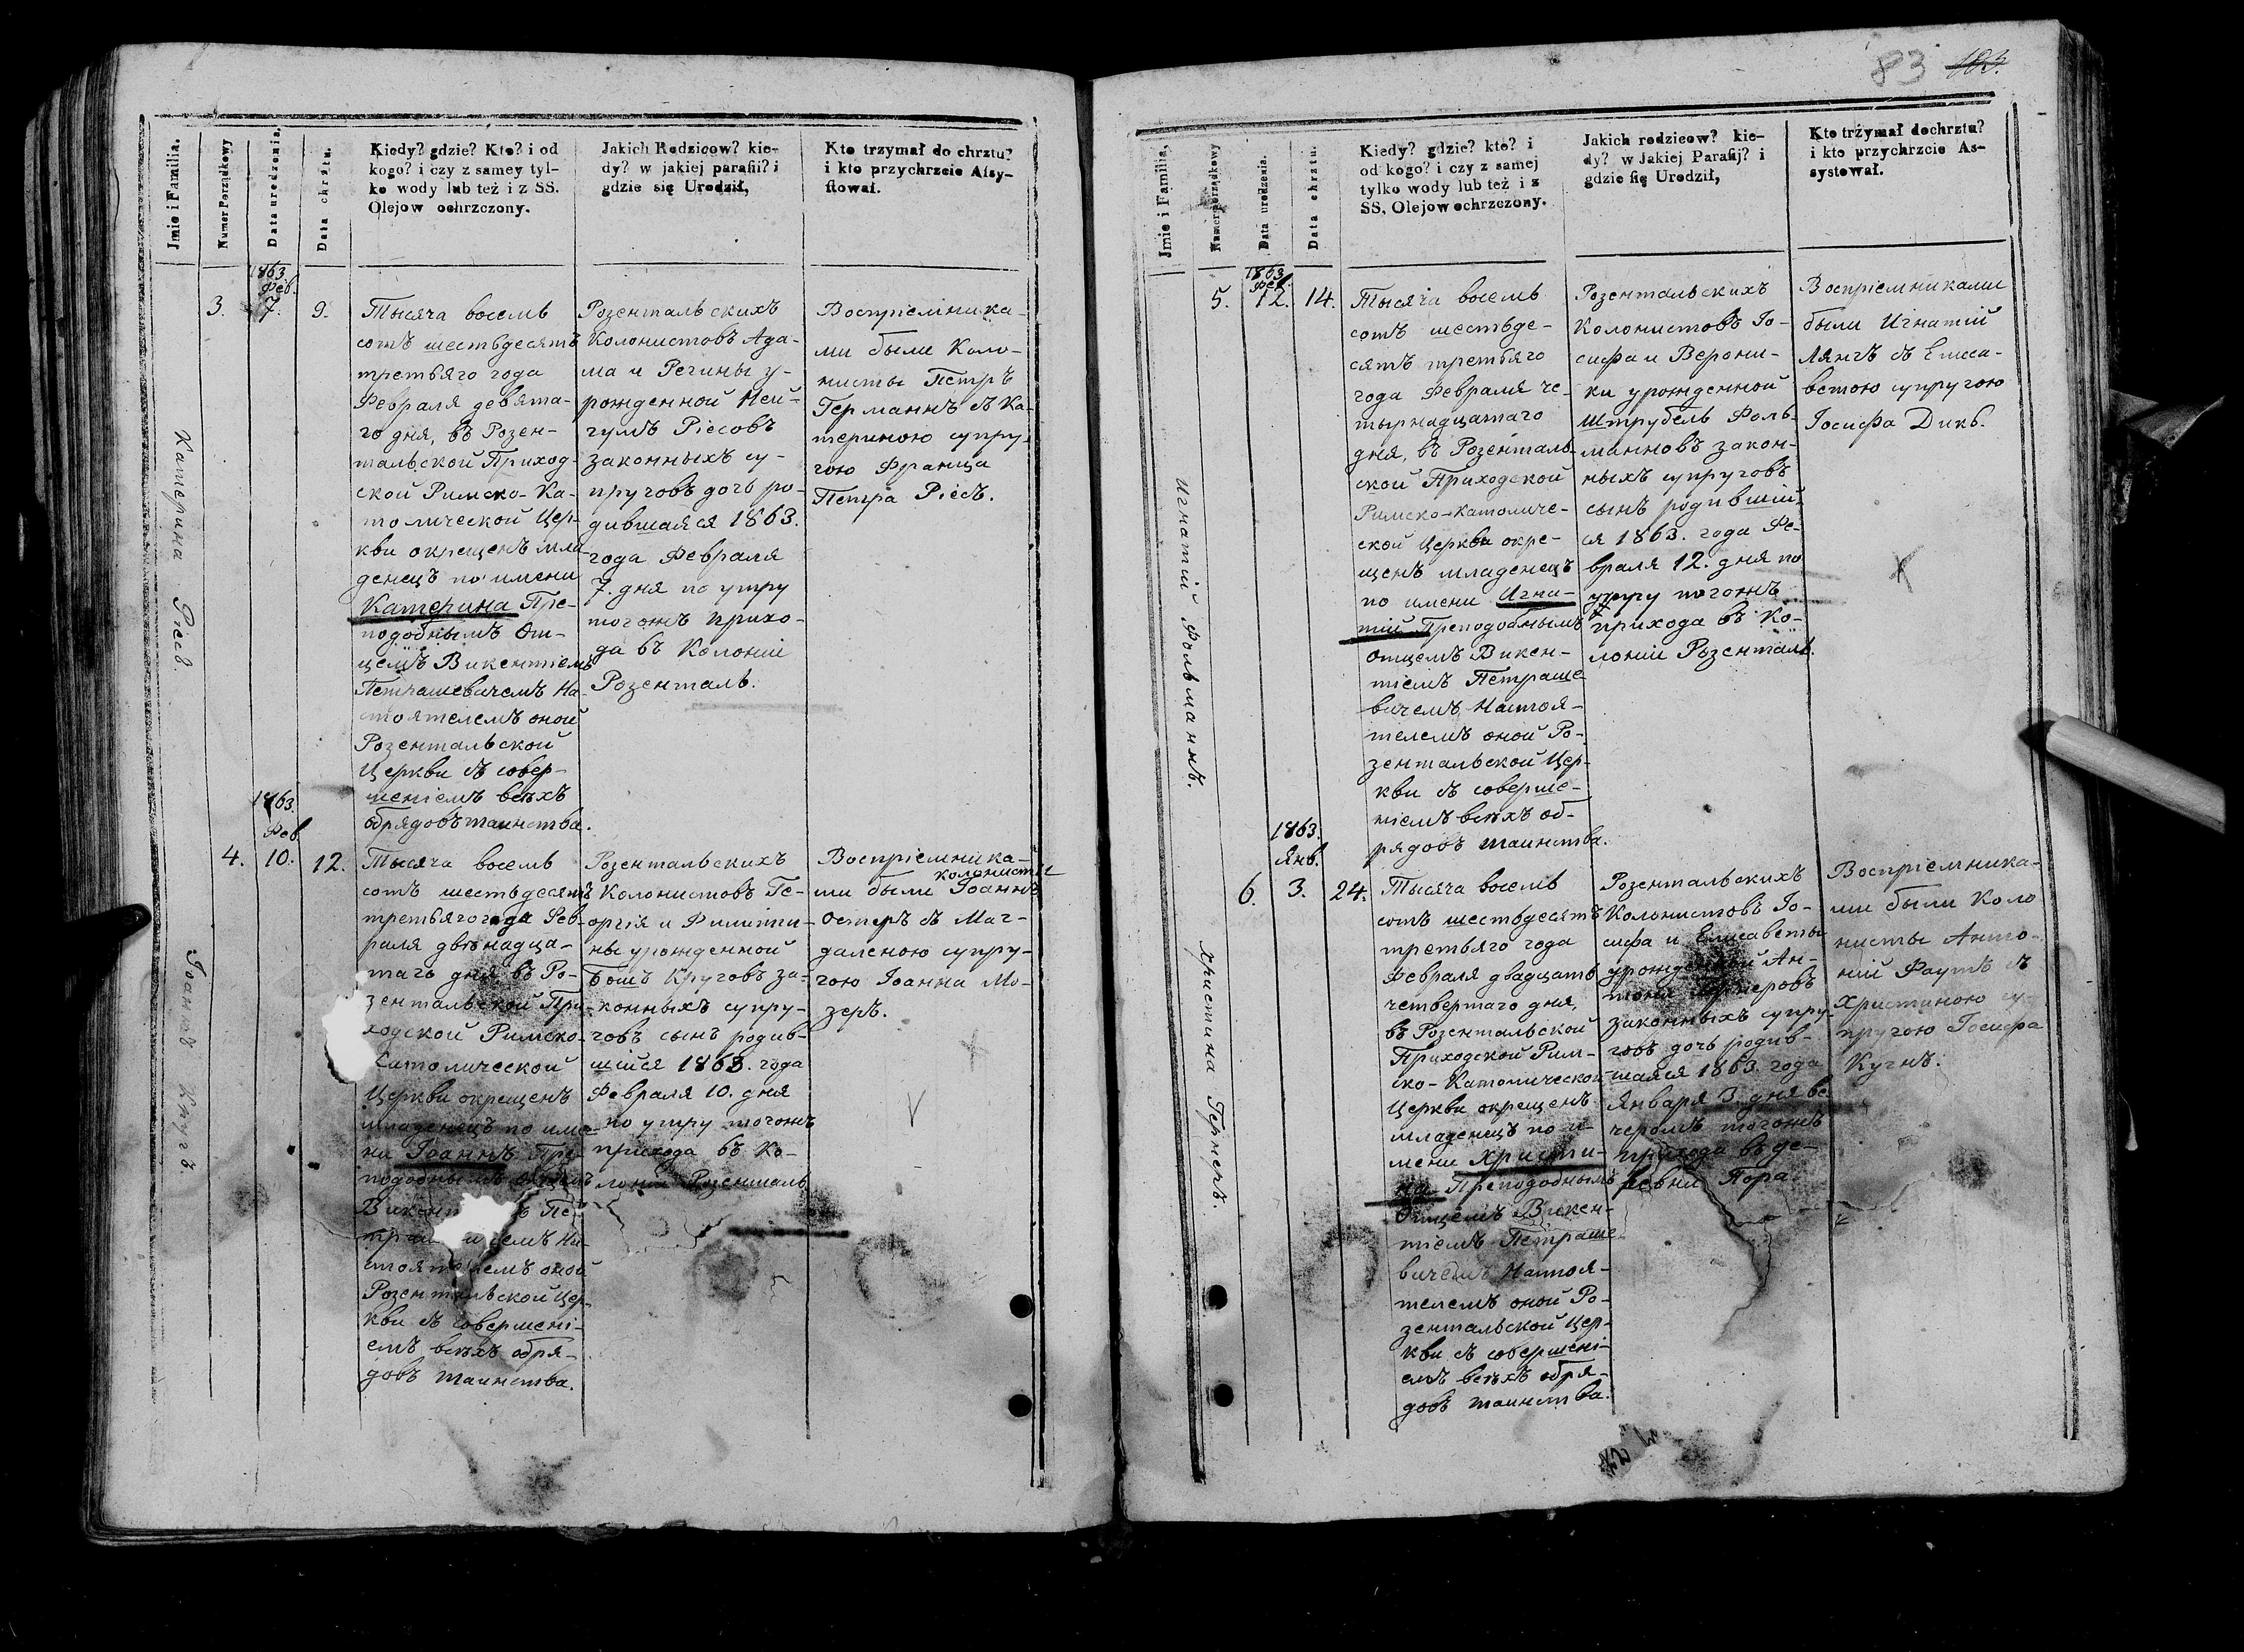 83 103.
Jmie i Familia.
Numer Porządkowy
Data urodzenia.
Data chrztu.
Kiedy? gdzie? Kto? i od
kogo? i czy z samey tyl-
ko wody lub też i z SS.
Olejow ochrzczony.
Jakich Rodziców? kie-
dy? w jakiej parafii? i
gdzie się Urodził,
Kto trzymał do chrztu?
i kto przychrzcie Assy-
stował.
Катерина Ріесъ.
3.
1863.
Фев.
7.
9.
Тысяча восемь
сотъ шестьдесятъ
третьяго года
Февраля девята-
го дня, въ Розен-
тальской Приход-
ской Римско-Ка-
толической Цер-
кви окрещенъ мла-
денецъ по имени
Катерина Пре-
подобнымъ От-
цемъ Викентіемъ
Петрашевичемъ На-
стоятелемъ оной
Розентальской
Церкви съ совер-
шеніемъ всѣхъ
обрядовъ таинства.
Розентальскихъ
Колонистовъ Ада-
ма и Регины у-
рожденной Ней-
гумъ Ріесовъ
законныхъ су-
пруговъ дочь ро-
дившаяся 1863.
года Февраля
7. дня по утру
тогожъ прихо-
да въ Колоніи
Розенталь.
Воспріемника-
ми были Коло-
нисты Петръ
Германнъ съ Ка-
териною супру-
гою Франца
Петра Ріесъ.
Іоаннъ Кругъ.
4.
1863.
Фев.
10.
12.
Тысяча восемь
сотъ шестьдесятъ
третьяго года Фев-
раля двѣнадца-
таго дня въ Ро-
зентальской При-
ходской Римско-
Католической
Церкви окрещенъ
младенецъ по име-
ни Іоаннъ Пре-
подобнымъ Отцемъ
Викент ъ Пе-
тра чемъ На-
стоятелемъ оной
Розентальской Цер-
кви съ совершені-
емъ всѣхъ обря-
довъ таинства.
Розентальскихъ
Колонистовъ Ге-
оргія и Филипи-
ны урожденной
Бошъ Круговъ за-
конныхъ супру-
говъ сынъ родив-
шійся 1863. года
Февраля 10. дня
по утру тогожъ
прихода въ Ко-
лоніи Розенталь
Воспріемника-
колонисты
ми были Іоаннъ
Остеръ съ Маг-
даленою супру-
гою Іоанна Мо-
зеръ.
Jmie i Familia.
Numer porządkowy
Data urodzenia.
Data chrztu.
Kiedy? gdzie? kto? i
od kogo? i czy z samej
tylko wody lub też i z
SS. Olejow ochrzczony.
Jakich rodzicow? kie-
dy? w Jakiej Parafij? i
gdzie się Urodził,
Kto trzymał dochrztu?
i kto przychrzcie As-
systował.
Игнатій Фольманнъ.
5.
1863.
Фев.
12.
14.
Тысяча восемь
сотъ шестьде-
сятъ третьяго
года Февраля че-
тырнадцатаго
дня, въ Розенталь-
ской Приходской
Римско-Католиче-
ской Церкви окре-
щенъ младенецъ
по имени Игна-
тій Преподобнымъ
Отцемъ Викен-
тіемъ Петраше-
вичемъ Настоя-
телемъ оной Ро-
зентальской Цер-
кви съ соверше-
ніемъ всѣхъ об-
рядовъ таинства.
Розентальскихъ
Колонистовъ Іо-
сифа и Верони-
ки урожденной
Штрубель Фоль-
манновъ закон-
ныхъ супруговъ
сынъ родившій-
ся 1863. года Фе-
враля 12. дня по
утру тогожъ
прихода въ Ко-
лоніи Розенталь.
Воспріемниками
были Игнатій
Лянгъ съ Елиса-
ветою супругою
Іосифа Дикъ.
Христина Гернеръ.
6.
1863.
Янв.
3.
24.
Тысяча восемь
сотъ шестьдесятъ
третьяго года
Февраля двадцать
четвертаго дня,
въ Розентальской
Приходской Рим-
ско-Католической
Церкви окрещенъ
младенецъ по и-
мени Христи-
на Преподобнымъ
Отцемъ Викен-
тіемъ Петраше
вичемъ Настоя-
телемъ оной Ро-
зентальской Цер-
кви съ совершені-
емъ всѣхъ обря-
довъ таинства.
Розентальскихъ
Колонистовъ Іо-
сифа и Елисаветы
урожденной Ан-
тони Гернеровъ
законныхъ супру-
говъ дочь родив-
шаяся 1863. года
Января 3. дня ве
черомъ тогожъ
прихода въ де-
ревни Пора
Воспріемника-
ми были Коло
нисты Анто-
ній Фаутъ съ
Христиною су-
пругою Іосифа
Кугнъ.